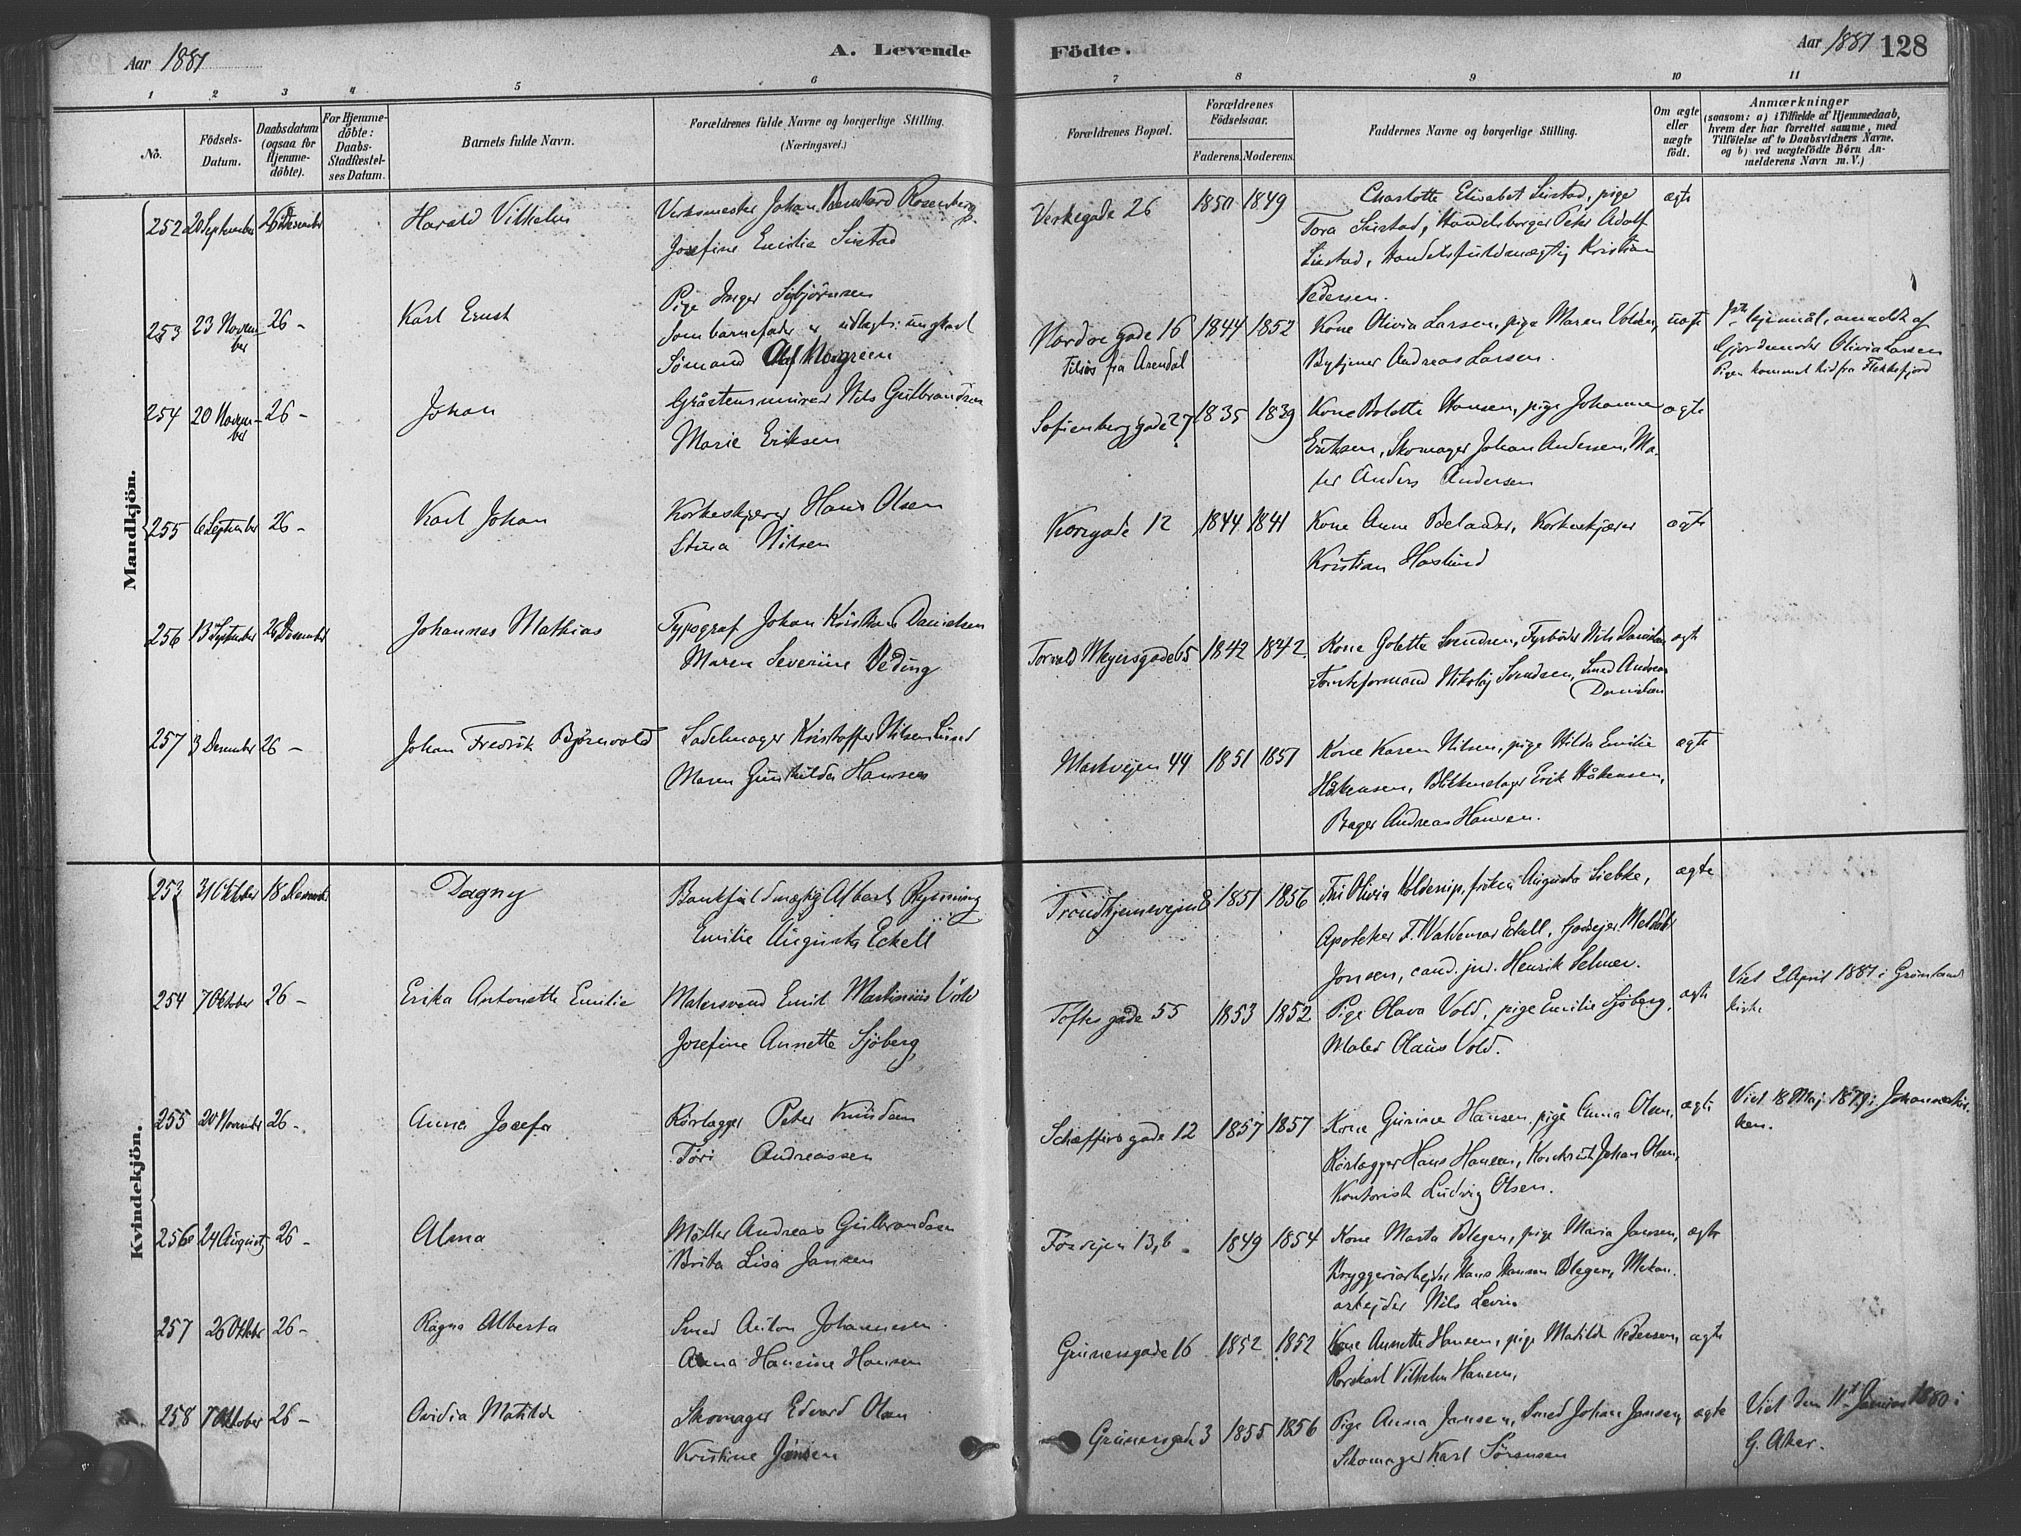 Aar 1881
A. Levende
Födte.
Aar 1881
128
1 2 3 4 5 6 7 8 9 10 11
No.
Födsels-
Datum.
Daabsdatum
(ogsaa for
Hjemme-
döbte).
For Hjemme-
döbte:
Daabs-
Stadfæstel-
ses Datum.
Barnets fulde Navn.
Forældrenes fulde Navne og borgerlige Stilling.
(Næringsvei.)
Forældrenes Bopæl.
Forældrenes
Födselsaar.
Faderens. Moderens.
Faddernes Navne og borgerlige Stilling.
Om ægte
eller
uægte
födt.
Anmærkninger
(saasom: a) i Tilfælde af Hjemmedaab,
hvem der har forrettet samme, med
Tilföielse af to Daabsvidners Navne.
og b) ved uægtefödte Börn An-
melderens Navn m. V.)
Mandkjön.
252 20 September 26 Desember
Harald Vilhelm
Verksmester Johan Bernhard Rosenberg
Josefine Emilie Sustad
Verksgade 26
1850 1849
Charlotte Elisabet Sustad, pige
Tora Sustad, Handelsborger Peter Adolf
Sustad, Handelsfuldmægtig Kristian
Pedersen.
ægte
253 23 Novem-
ber
26 -
Karl Ernst
Pige Inger Sibjørnsen
Som barnefader er udlagt: ungkarl
Sømand Olaf
Nordre gade 16
fra Arendal
1844 1852
Kone Olivia Larsen, pige Maren Volden,
Bytjener Andreas Larsen.
uægte
anmeldt af
Gjordemoder Olivia Larsen
Pigen kommet hid fra Flekkefjord
254 20 Novem-
ber
26 -
Johan
Nils Gulbrandsen
Marie Eriksen
Sofienberggade 27
1835 1839
Kone Bolette Hansen, pige Johanne
Eriksen, Skomager Johan Andersen, Ma-
ler Anders Andersen
ægte
255 6 September 26 -
Karl Johan
Korkeskjærer Hans Olsen
Stina Nilsen
Korsgade 12
1844 1841
Kone Anne Belander, Korkeskjærer
Kristian Haslund
ægte
256 13 September 26 Desember
Johannes Mathias
Typograf Johan Kristian Danielsen
Maren Severine Veding
Torvald Meyersgade 65
1842 1842.
Kone Golette Svendsen, Fyrbøder Nils Danielsen
Nikolaj Svendsen, Smed Andreas
Danielsen
ægte
257 3 Desember 26 -
Johan Fredrik Bjørnvald
Sadelmager Kristoffer Nilsen Lund
Maren Gunhilda Hansen
Markvejen 44
1851 1851
Kone Karen Nilsen, pige Hilda Emilie
Håkensen, Blikkenslager Erik Håkensen,
Bager Andreas Hansen.
ægte
Kvindekjön.
253 31 Oktober 18 Desember
Dagny
Bankfuldmægtig Albert Rynning
Emilie Augusta Eckell
Trondhjemsvejen 8
1851 1856
Fru Olivia Kolderup, frøken Augusta Siebke,
Apoteker F. Valdemar Eckell, Godsejer
Jonsen, cand. jur. Henrik Selmer.
ægte
254 7 Oktober 26 -
Erika Antonette Emilie
Malersvend Emil Martinius Vold
Josefine Annette Sjøberg
Toftes gade 55
1853 1852
Pige Olava Vold, pige Emilie Sjøberg,
Maler Olaus Vold.
ægte
Viet 2 April 1881 i Grønlands
kirke
255 20 November 26 -
Anna Josefa
Rørlægger Peter Knudsen
Tøri Andreassen
Schæffers gade 12
1857 1857
Kone Gurine Hansen, pige Anna Olsen,
Rørlægger Hans Hansen, Johan Olsen,
Kontorist Ludvig Olsen.
ægte
Viet 18 Maj 1879 i Johanneskir-
ken.
256 24 August 26 -
Alma
Møller Andreas Gulbrandsen
Brita Lisa Jansen
Fossvejen 13, b
1849 1854
Kone Marta Blegen, pige Maria Jansen,
Bryggeriarbejder Hans Hansen Blegen, Mekan.
arbejder Nils Levin
ægte
257 26 Oktober 26 -
Ragna Alberta
Smed Anton Johannesen
Anna Hansine Hansen
Grünersgade 16
1852 1852
Kone Annette Hansen, pige Matilde Pedersen,
Vilhelm Hansen,
ægte
258 Oktober 26 -
Ovidia Matilde
Skomager Edvard Olsen
Kristine Jansen
Grünersgade 3
1855 1856
Pige Anna Jansen, Smed Johan Jansen,
Skomager Karl Sørensen
ægte
Viet den 11te Januar 1880 i
G. Aker.